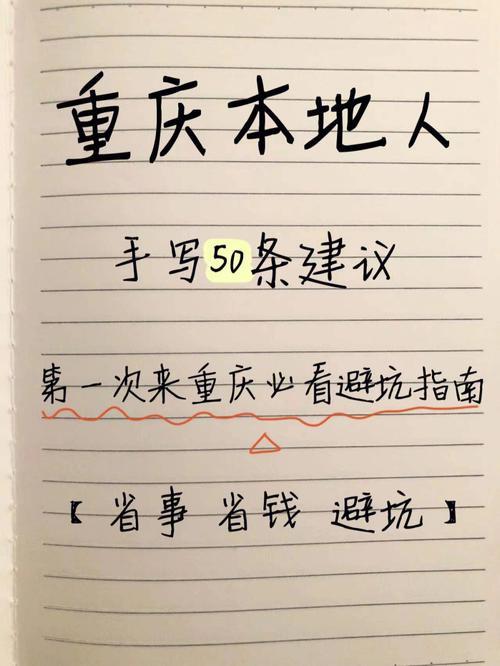 重庆本地人
手写50条建议
第一次来重庆必看避坑指南
【省事 省钱 避坑】